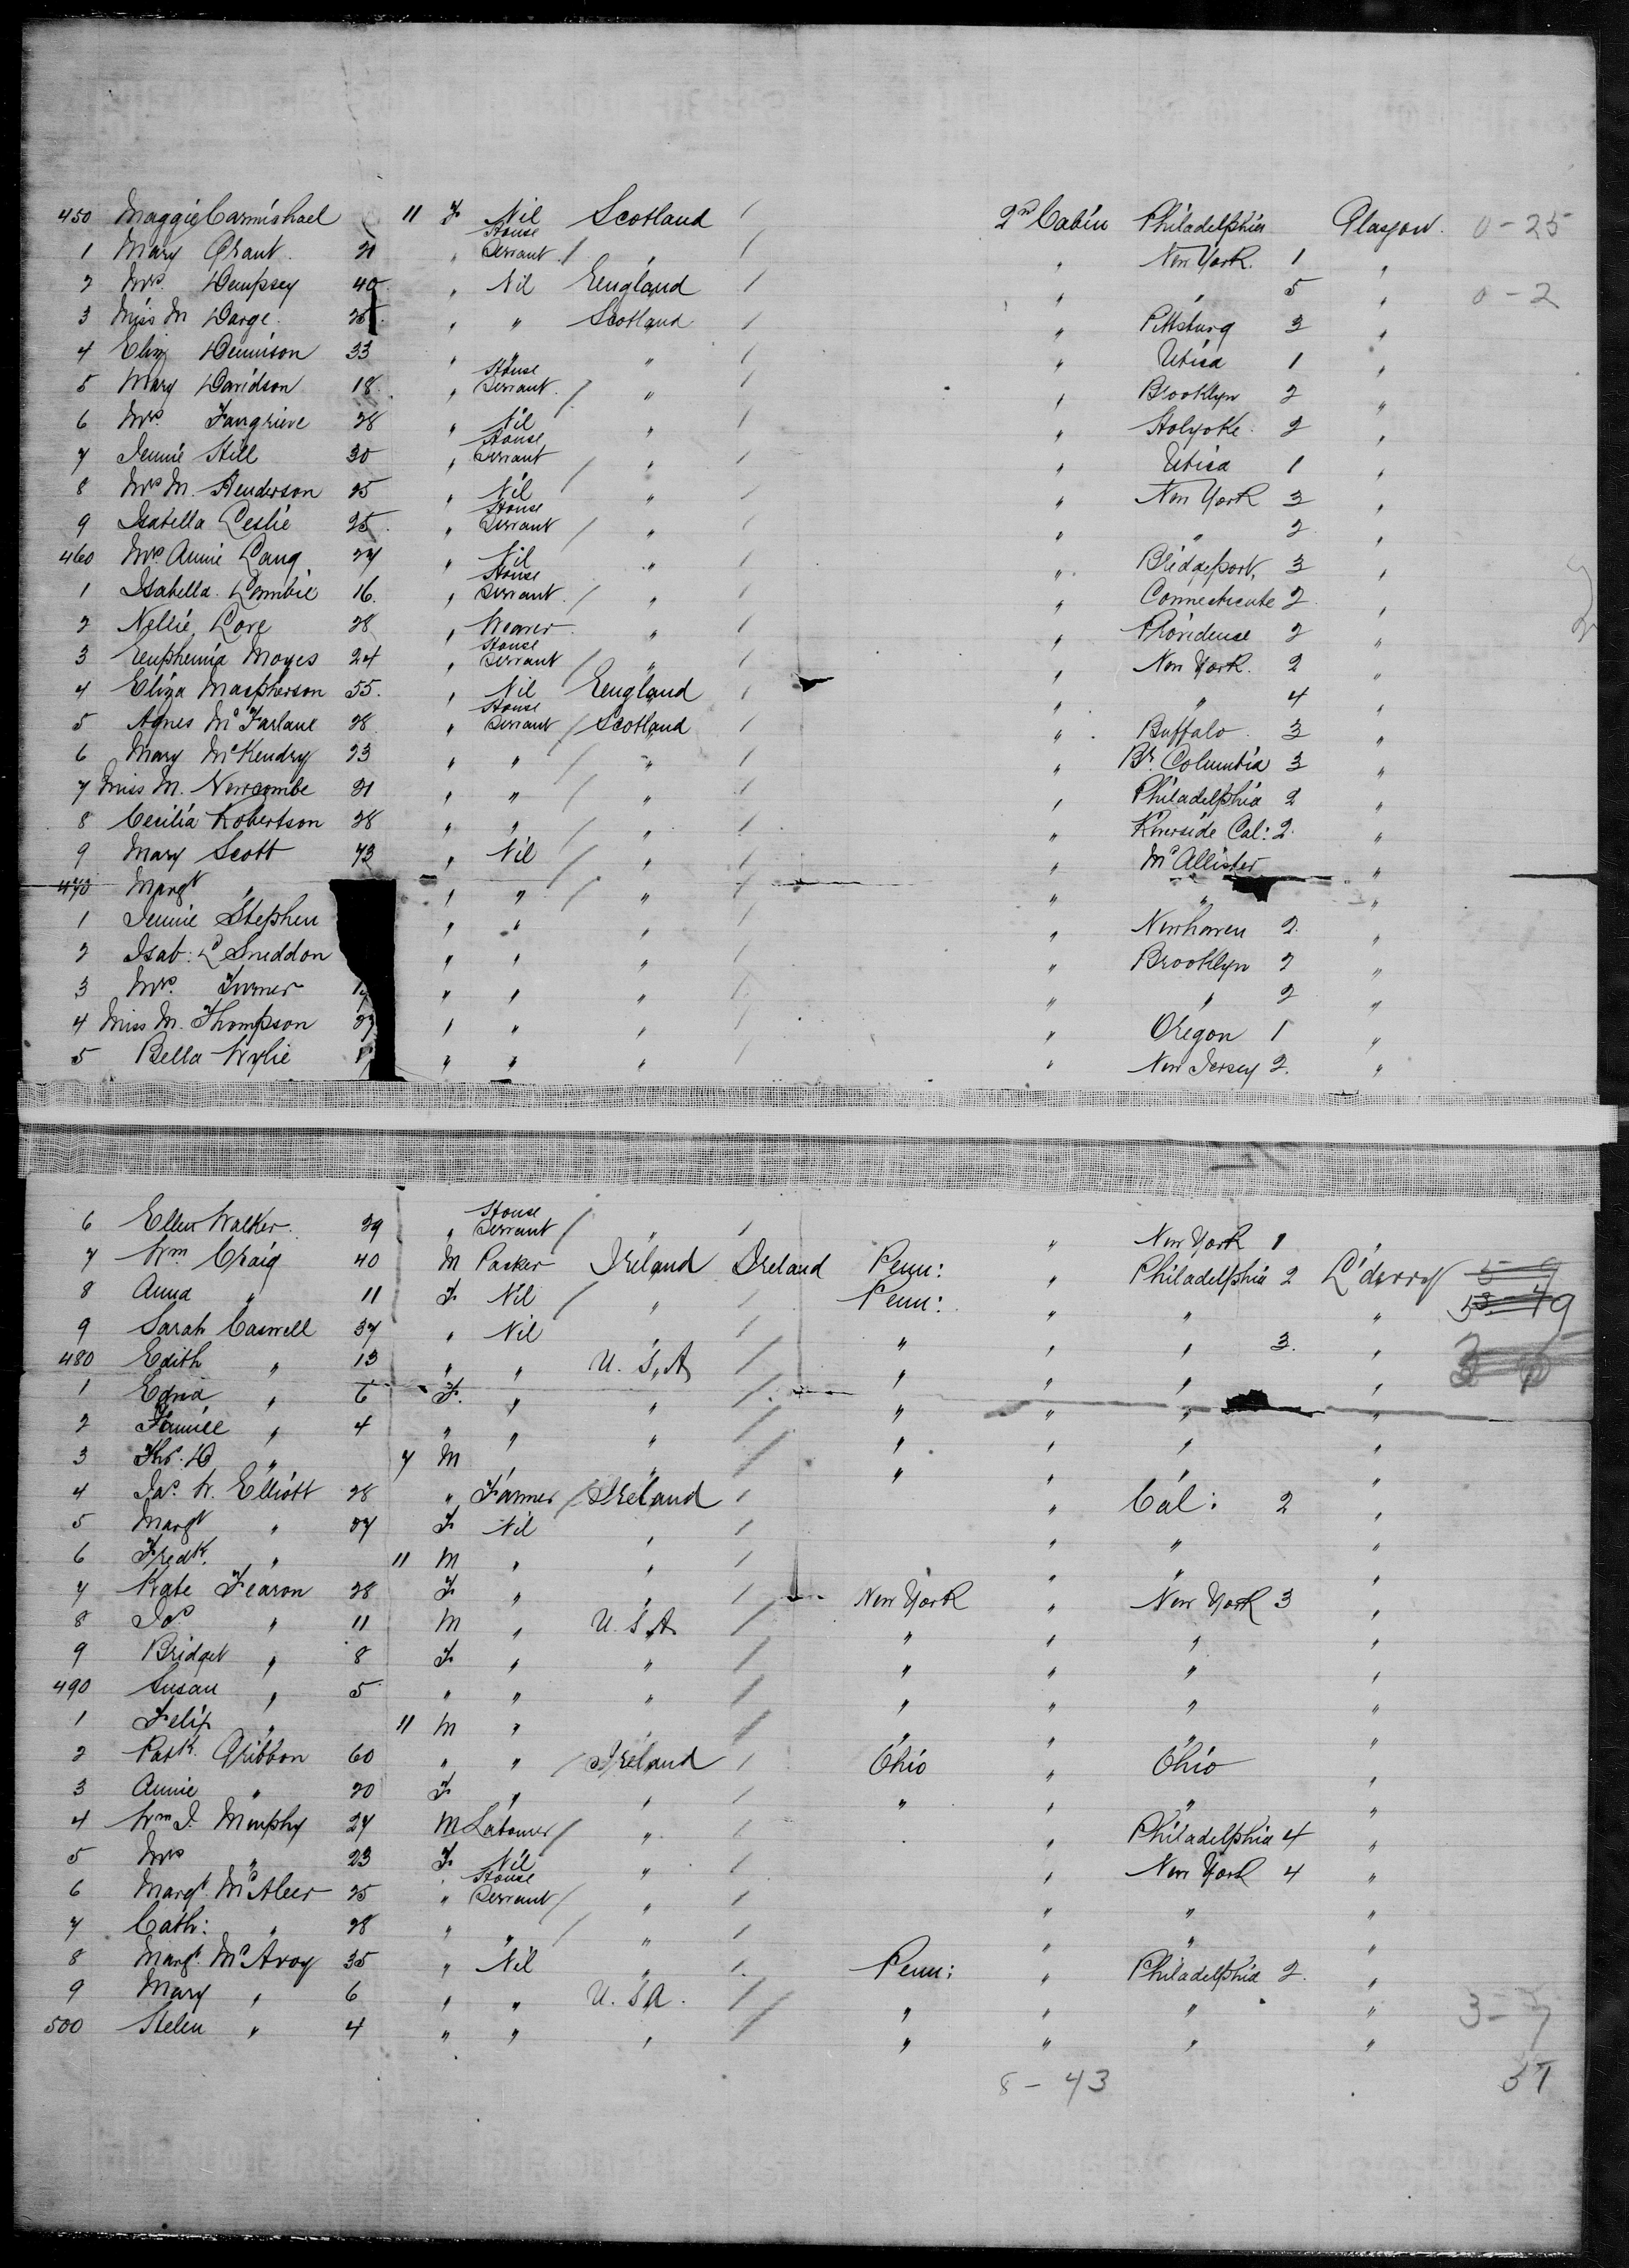 450 Maggie Carmichael 11 F Nil Scotland / 2nd Cabin Philadelphia Glasgow 0-25
1 Mary Grant 21 " House Servant / " / " New York 1 "
2 Mrs. Dempsey 40 " Nil England / " " 5 " 0-2
3 Miss M Darge 25 " " Scotland / " Pittsburg 3 "
4 Eliz Dennison 33 " " " / " Utica 1 "
5 Mary Davidson 18 " House Servant / " / " Brooklyn 2 "
6 Mrs. Tangrieve 28 " Nil " / " Holyoke 2 "
7 Jennie Hill 30 " House Servant / " / " Utica 1 "
8 Mrs M. Henderson 25 " Nil " / " New York 3 "
9 Isabella Leslie 25 " House Servant / " / " " 2 "
460 Mrs. Annie Lang 27 " Nil " / " Bridgeport, 3 "
1 Isabella Lambie 16 " House Servant / " / " Connecticute 2 "
2 Nellie Love 28 " Weaver " / " Providence 2 "
3 Euphemia Moyes 24 " House Servant / " / " New York 2 "
4 Eliza Macpherson 55 " Nil England / " " 4 "
5 Agnes McFarlane 28 " House Servant / Scotland / " Buffalo 3 "
6 Mary McKendry 23 " " / " / " Br. Columbia 3 "
7 Miss M. Newcombe 21 " " / " / " Philadelphia 2 "
8 Cecilia Robertson 28 " " / " / " Riverside Cal: 2 "
9 Mary Scott 73 " Nil / " / " McAllister "
470 Margt " " " / " / " " "
1 Jennie Stephen " " " / " Newhaven 2 "
2 Isab: L Sneddon " " " / " Brooklyn 2 "
3 Mrs. Turner " " " / " " 2 "
4 Miss M. Thompson 27 " " " / " Oregon 1 "
5 Bella Wylie " " " / " New Jersey 2 "
6 Ellen Walker 29 " House Servant / " / " New York 1 "
7 Wm. Craig 40 M Packer Ireland Ireland Penn: " Philadelphia 2 L'derry
8 Anna " 11 F Nil / " / Penn: " " "
9 Sarah Caswell 37 " Nil " / " " " 3 "
480 Edith " 13 " " U.S.A / " " " "
1 Edna " 6 F. " " / " " " "
2 Fannie " 4 " " " / " " " "
3 Ths. D " 7 M " " / " " " "
4 Jas. W. Elliott 28 " Farmer / Ireland / " Cal: 2 "
5 Margt " 27 F Nil " / " " "
6 Fredk. " 11 M " " / " " "
7 Kate Fearon 28 F " " / New York " New York 3 "
8 Jas " 11 M " U.S.A. / " " " "
9 Bridget " 8 F " " / " " " "
490 Susan " 5 " " " / " " " "
1 Felix " 11 M " " / " " " "
2 Patk. Gribbon 60 " " / Ireland / Ohio " Ohio "
3 Annie " 20 F " " / " " " "
4 Wm J. Murphy 27 M Labourer / " / " Philadelphia 4 "
5 Mrs " 23 F Nil " / " New York 4 "
6 Margt. McAleer 25 " House Servant / " / " " "
7 Cath: " 28 " " / " / " " "
8 Margt. McAvoy 35 " Nil " / Penn: " Philadelphia 2 "
9 Mary " 6 " " U.S.A. / " " " " 3-7
500 Helen " 4 " " " / " " " "
8-43 37